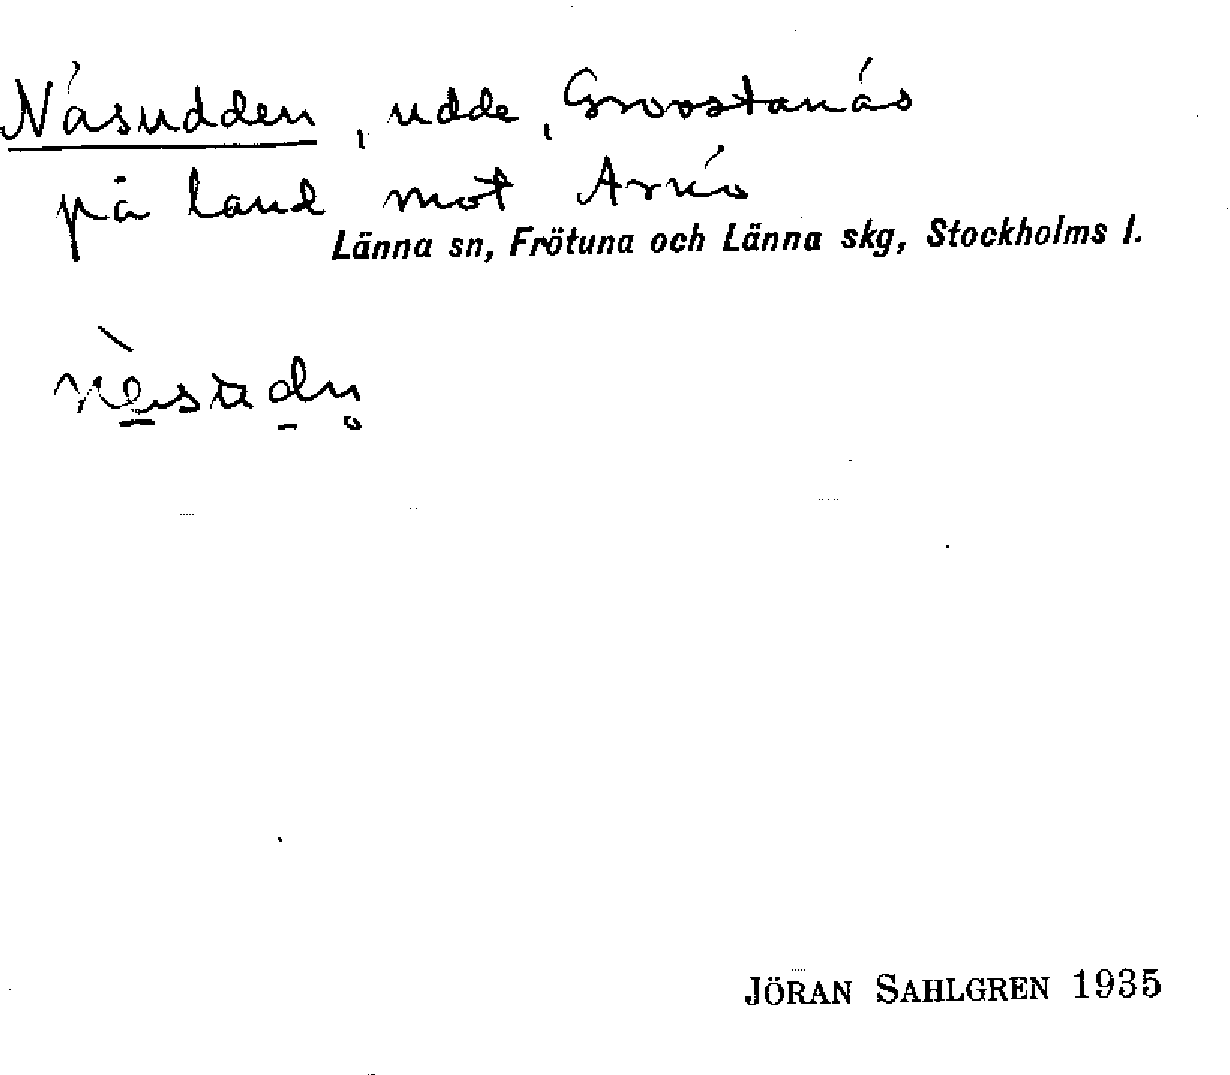 Näsudden, udde, Grovstanäs
på land mot Arnö
Länna sn, Frötuna och Länna skg, Stockholms l.
JÖRAN SAHLGREN 1935